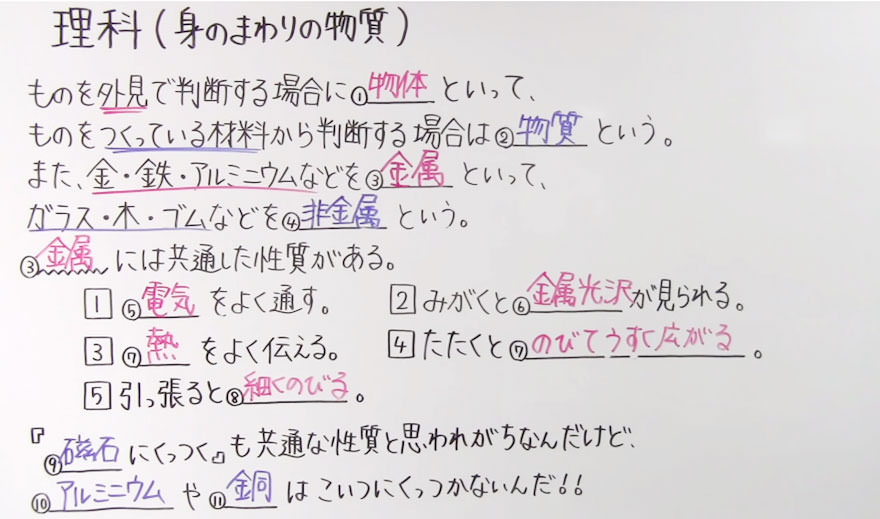 理科(身のまわりの物質)
ものを外見で判断する場合に①物体といって、
ものをつくっている材料から判断する場合は②物質という。
また、金・鉄・アルミニウムなどを③金属といって、
ガラス・木・ゴムなどを④非金属という。
③金属には共通した性質がある。
1 ⑤電気をよく通す。 2 みがくと⑥金属光沢が見られる。
3 ⑦熱をよく伝える。 4 たたくと⑦のびてうすく広がる。
5 引っ張ると⑧細くのびる。
『⑨磁石にくっつく』も共通な性質と思われがちなんだけど、
⑩アルミニウムや⑪銅はこいつにくっつかないんだ!!